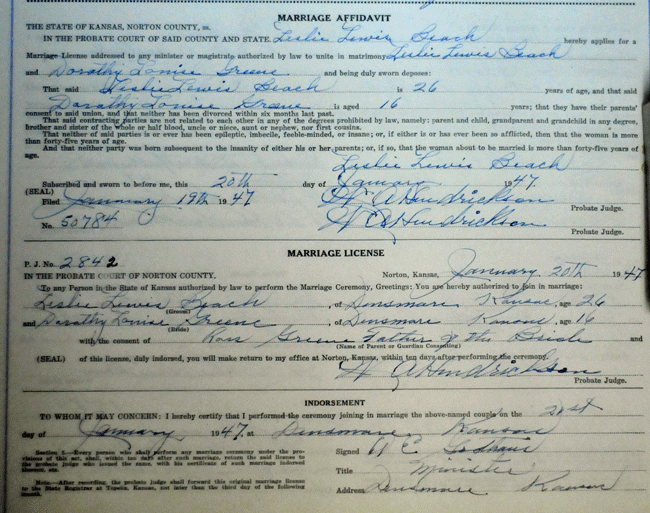 MARRIAGE AFFIDAVIT
THE STATE OF KANSAS, NORTON COUNTY, ss.
IN THE PROBATE COURT OF SAID COUNTY AND STATE. Leslie Lewis Beach hereby applies for a
Marriage License addressed to any minister or magistrate authorized by law to unite in matrimony Leslie Lewis Beach
and Dorothy Louise Greene and being duly sworn deposes:
That said Leslie Lewis Beach is 26 years of age, and that said
Dorothy Louise Greene is aged 16 years; that they have their parents'
consent to said union, and that neither has been divorced within six months last past.
That said contracting parties are not related to each other in any of the degrees prohibited by law, namely: parent and child, grandparent and grandchild in any degree,
brother and sister of the whole or half blood, uncle or niece, aunt or nephew, nor first cousins.
That neither of said parties is or ever has been epileptic, imbecile, feeble-minded, or insane; or, if either is or has ever been so afflicted, then that the woman is more
than forty-five years of age.
And that neither party was born subsequent to the insanity of either his or her parents; or, if so, that the woman about to be married is more than forty-five years of
age.
Leslie Lewis Beach
Subscribed and sworn to before me, this 20th day of January 1947.
(SEAL)
Filed January 19th 1947 W A Hendrickson
Probate Judge.
No. 50784 W A Hendrickson
Probate Judge.
MARRIAGE LICENSE
P. J. No. 2842
IN THE PROBATE COURT OF NORTON COUNTY. Norton, Kansas, January 20th 1947
To any Person in the State of Kansas authorized by law to perform the Marriage Ceremony, Greetings: You are hereby authorized to join in marriage:
Leslie Lewis Beach, of Densmore Kansas, age 26
(Groom)
and Dorothy Louise Greene, of Densmore Kansas, age 16
(Bride)
with the consent of Ross Greene Father of the Bride and
(Name of Parent or Guardian Consenting)
(SEAL) of this license, duly indorsed, you will make return to my office at Norton, Kansas, within ten days after performing the ceremony.
W A Hendrickson
Probate Judge.
INDORSEMENT
TO WHOM IT MAY CONCERN: I hereby certify that I performed the ceremony joining in marriage the above-named couple on the 21st
day of January, 1947, at Densmore Kansas
Signed
Title Minister
Address Densmore Kansas
Section 5.—Every person who shall perform any marriage ceremony under the pro-
visions of this act, shall, within ten days after such marriage, return the said license to
the probate judge who issued the same, with his certificate of such marriage indorsed
thereon, etc.
Note.—After recording, the probate judge shall forward this original marriage license
to the State Registrar at Topeka, Kansas, not later than the third day of the following
month.